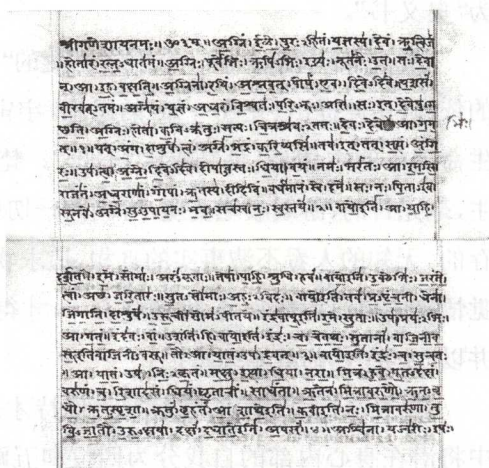 श्रीगणेशायनमः॥ॐ३म्॥अग्निं।ईळे।पुरःऽहितं।यज्ञस्य।देवं।ऋत्विजं
होतारं।रत्नऽधातमं॥अग्निः।पूर्वेभिः।ऋषिऽभिः।ईड्यः।नूतनैः।उत।सः।देवा
न्।आ।इह।वक्षति॥अग्निना।रयिं।अश्नवत्।पोषं।एव।दिवेऽदिवे।यशसं
वीरवत्ऽतमं॥अग्ने।यं।यज्ञं।अध्वरं।विश्वतः।परिऽभूः।असि।सः।इत्।देवेषु।ग
च्छति॥अग्निः।होता।कविऽक्रतुः।सत्यः।चित्रश्रवःऽतमः।देवः।देवेभिः।आ।गम
त्॥१॥यत्।अंग।दाशुषे।त्वं।अग्ने।भद्रं।करिष्यसि।तव।इत्।तत्।सत्यं।अंगि
रः॥उप।त्वा।अग्ने।दिवेऽदिवे।दोषाऽवस्तः।धिया।वयं।नमः।भरंतः।आ।इमसि
राजंतं।अध्वराणां।गोपां।ऋतस्य।दीदिविं।वर्धमानं।स्वे।दमे॥सः।नः।पिताऽइव
सूनवे।अग्ने।सुऽउपायनः।भव।सचस्व।नः।स्वस्तये॥२॥वायोइति।आ।याहि।
दर्शत।इमे।सोमाः।अरंऽकृताः।तेषां।पाहि।श्रुधि।हवं॥वायोइति।उक्थेभिः।जरंते
त्वां।अच्छ।जरितारः।सुतऽसोमाः।अहःऽविदः॥वायोइति।तव।प्रऽपृंचती।धेना
जिगाति।दाशुषे।उरूची।सोमऽपीतये॥इंद्रवायूइति।इमे।सुताः।उप।प्रयःऽभिः।
आ।गतं।इंदवः।वां।उशंति।हि॥वायोइति।इंद्रः।च।चेतथः।सुतानां।वाजिनीव
सूइतिवाजिनीऽवसू।तौ।आ।यातं।उप।द्रवत्॥३॥वायोइति।इंद्रः।च।सुन्वतः
आ।यातं।उप।निःऽकृतं।मक्षु।इत्था।धिया।नरा॥मित्रं।हुवे।पूतऽदक्षं
वरुणं।च।रिशादसं।धियं।घृताचीं।साधंता॥ऋतेन।मित्रावरुणौ।ऋतऽवृ
धौ।ऋतऽस्पृशा।क्रतुं।बृहंतं।आशाथेइति॥कवीइति।नः।मित्रावरुणा।तु
विऽजातौ।उरुऽक्षया।दक्षं।दधातेइति।अपसं॥४॥अश्विना।यज्वरीः।इषः